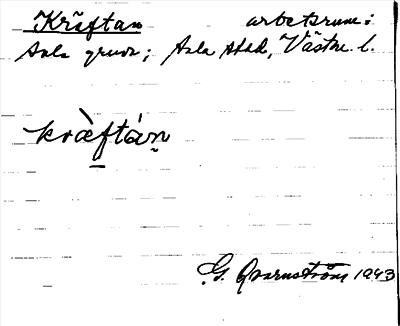 Kräftan arbetsrum i
Sala gruva; Sala stad, Västm. l.
kràftán
G. Qvarnström 1943